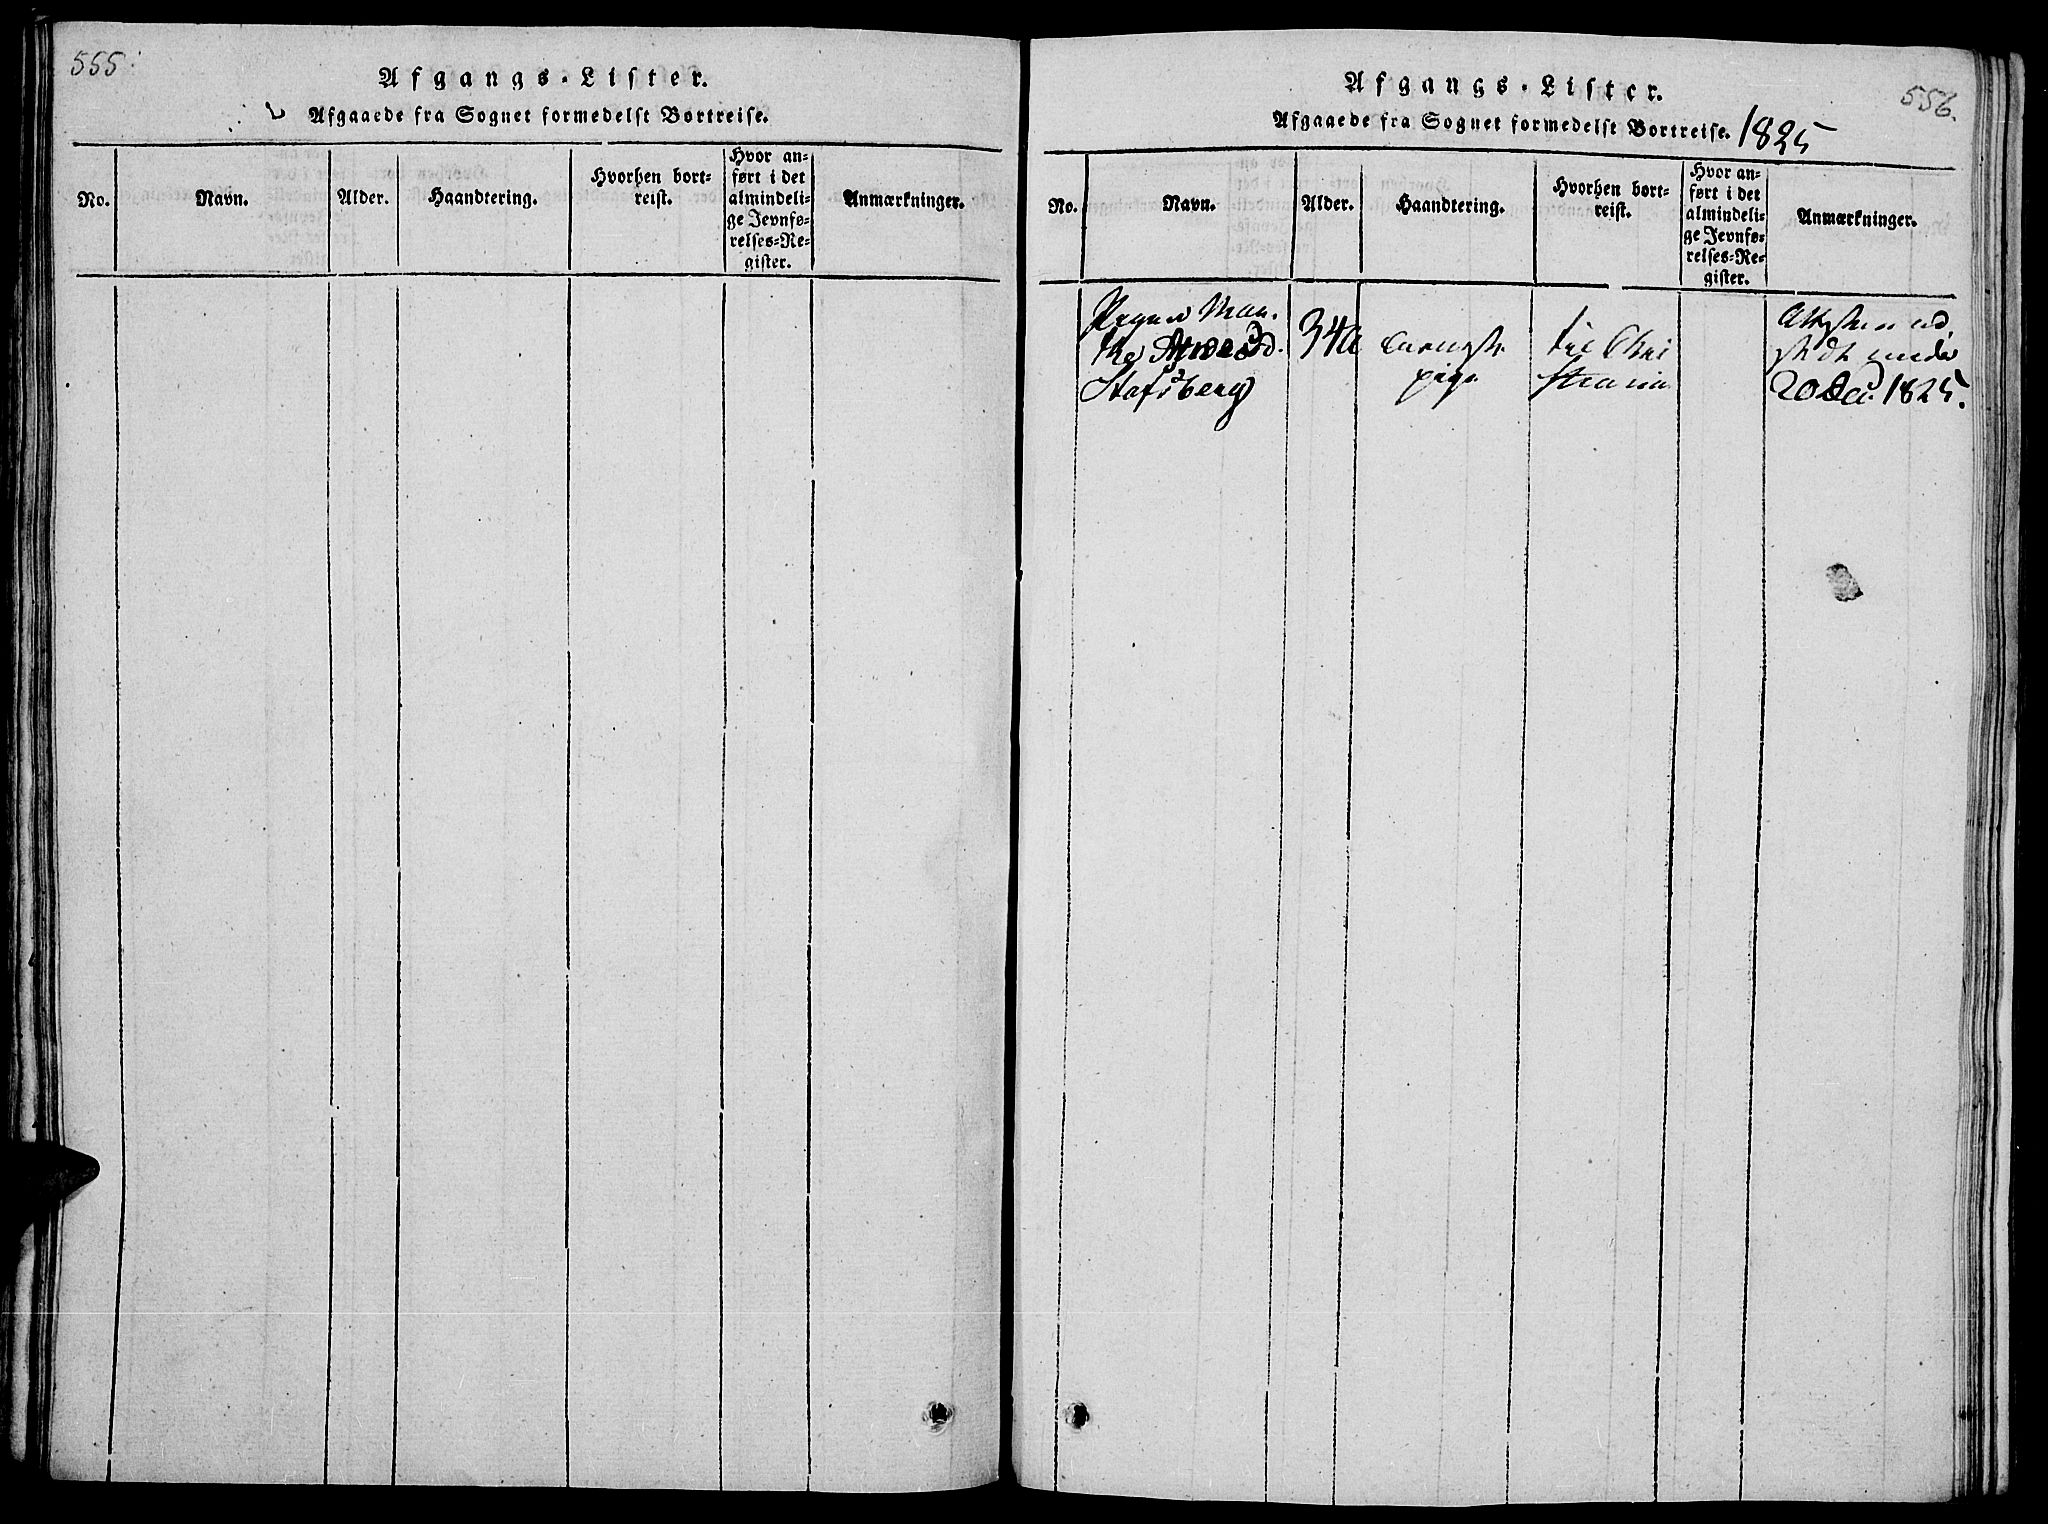 555.
Afgangs-Lister.
Afgaaede fra Sognet formedelst Bortreise.
No.
Navn.
Alder.
Haandtering.
Hvorhen bort-
reist.
Hvor an-
ført i det
almindeli-
ge Jevnfø-
relses-Re-
gister.
Anmærkninger.
556.
Afgangs-Lister.
Afgaaede fra Sognet formedelst Bortreise. 1825
No.
Navn.
Alder.
Haandtering.
Hvorhen bort-
reist.
Hvor an-
ført i det
almindeli-
ge Jevnfø-
relses-Re-
gister.
Anmærkninger.
Mar-
the
Stafsberg
34
pige
til Chri
stiania
Attesten ud
stedt under
20 Dec. 1825.